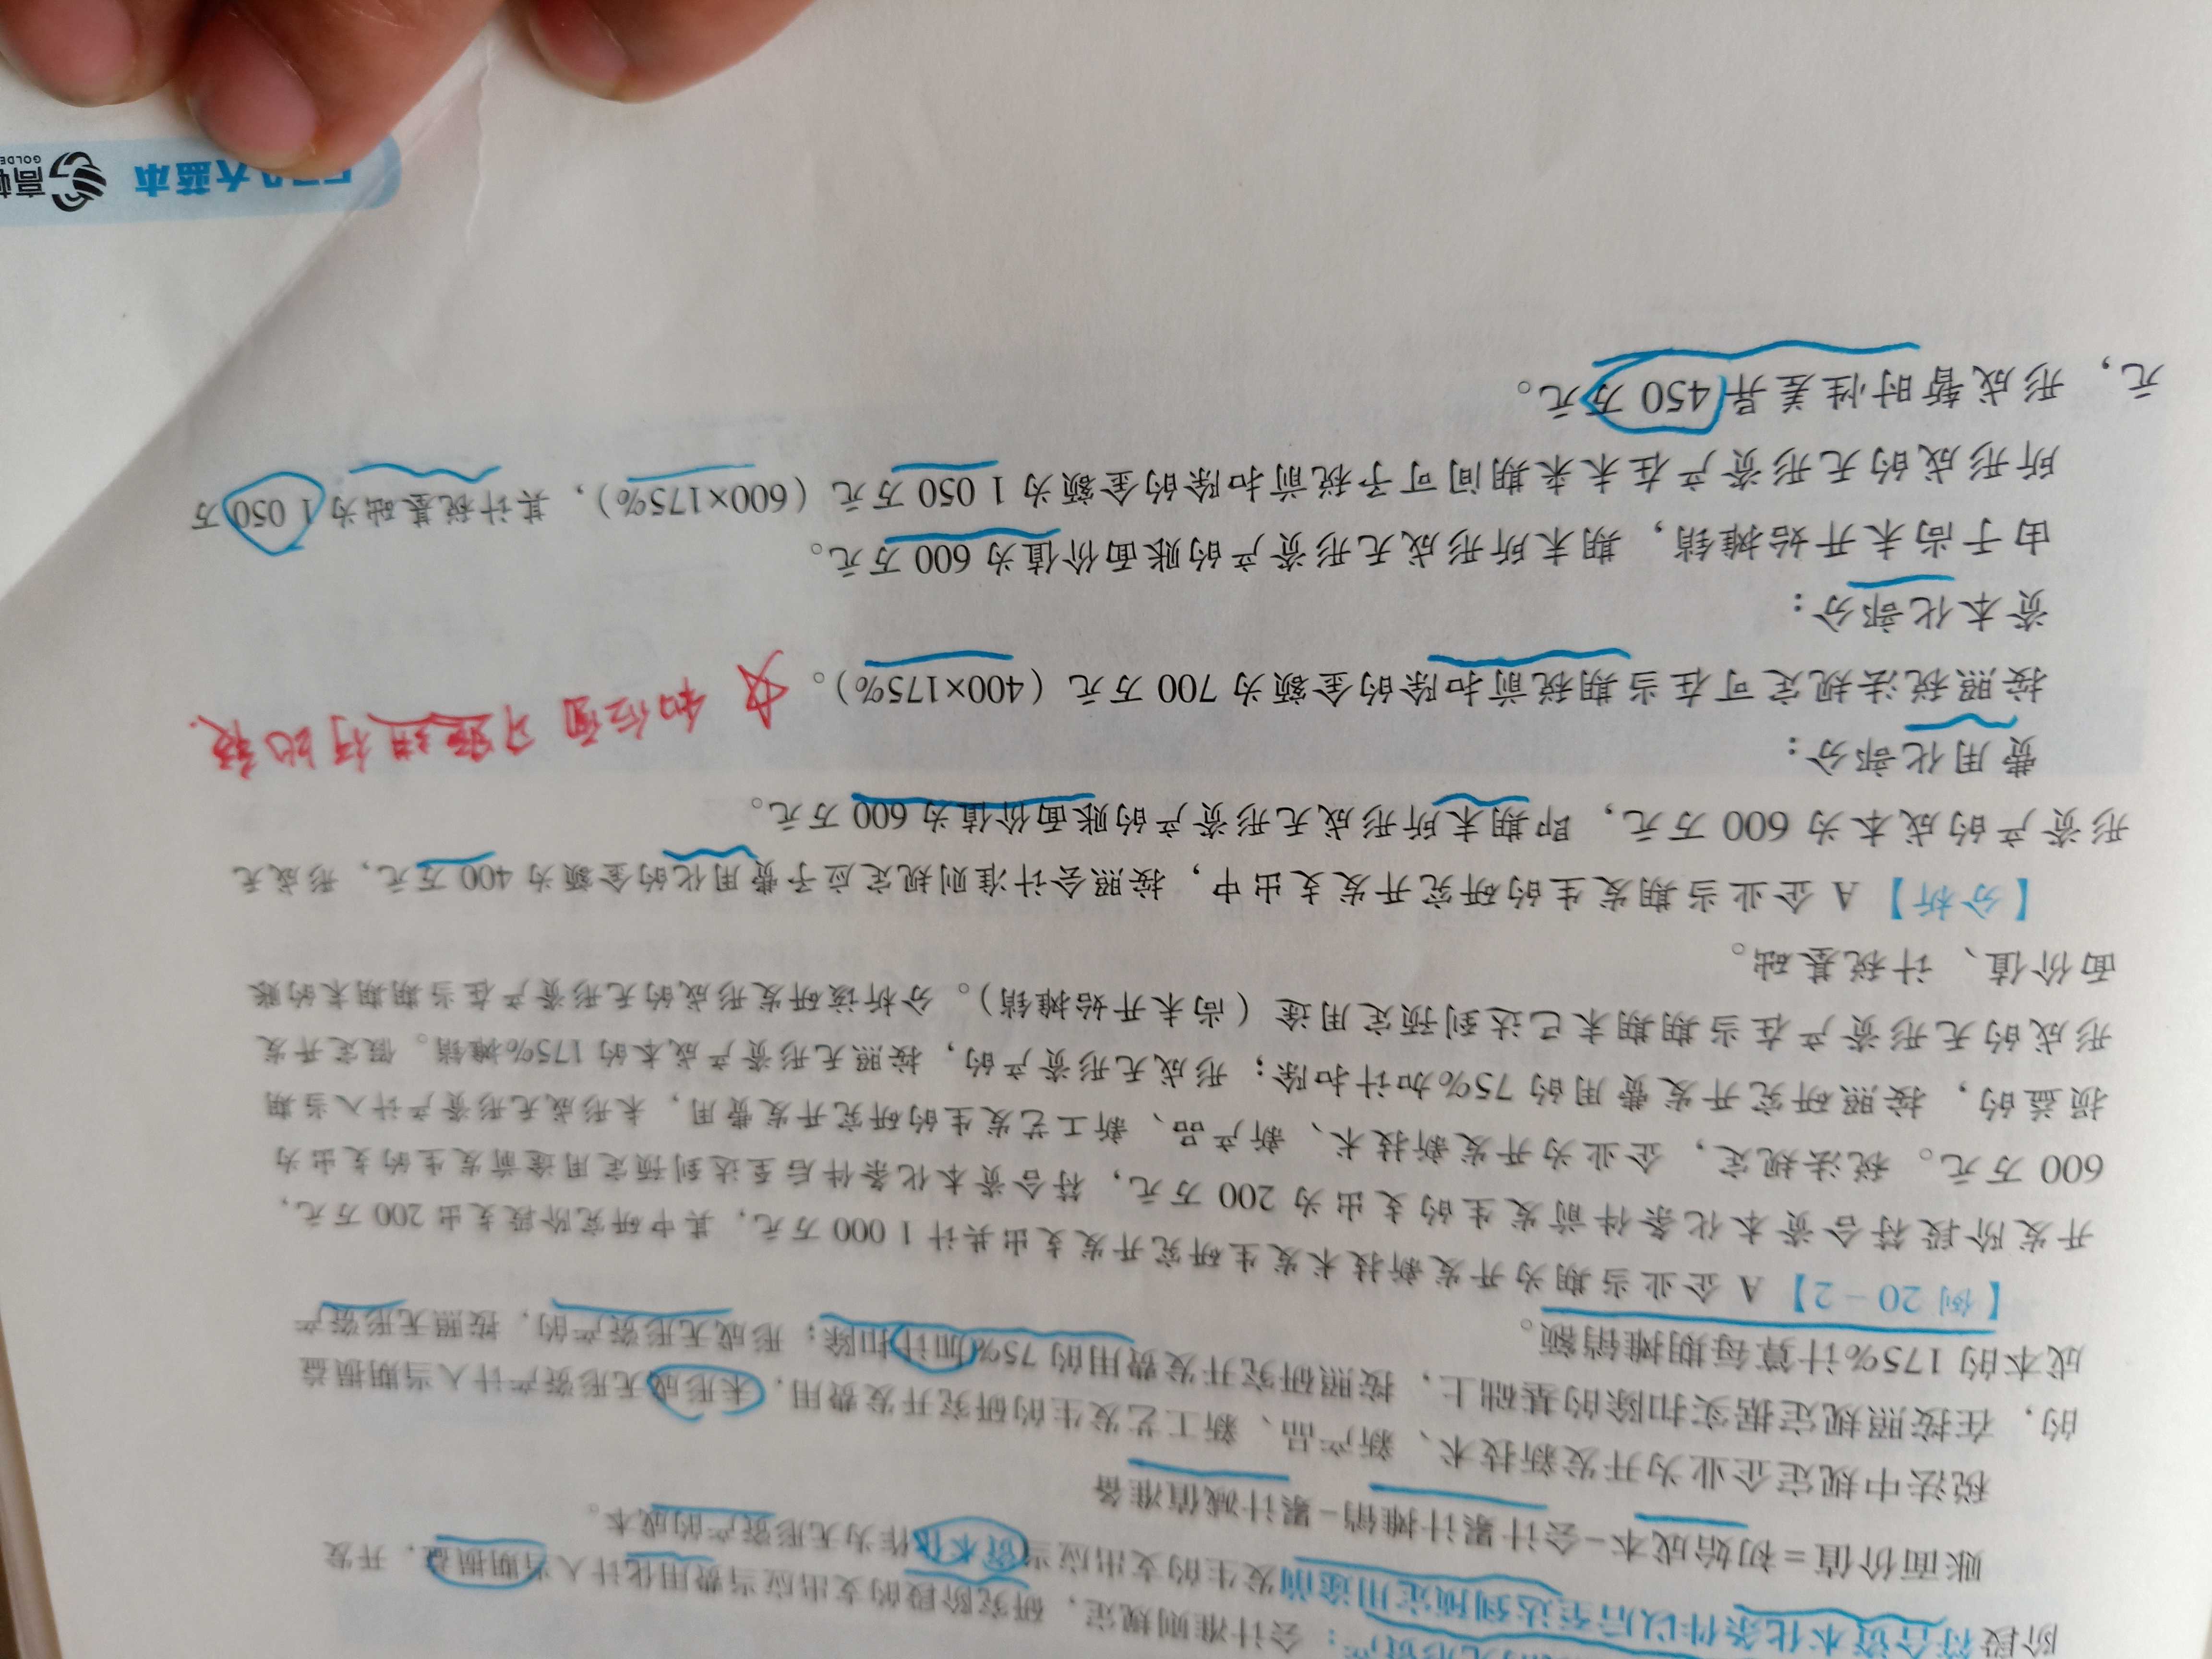 无形资产：会计准则规定，研究阶段的支出应当费用化计入当期损益，开发
阶段符合资本化条件以后至达到预定用途前发生的支出应当资本化作为无形资产的成本。
账面价值＝初始成本－会计累计摊销－累计减值准备
税法中规定企业为开发新技术、新产品、新工艺发生的研究开发费用，未形成无形资产计入当期损益
的，在按照规定据实扣除的基础上，按照研究开发费用的75%加计扣除；形成无形资产的，按照无形资产
成本的175%计算每期摊销额。
【例20-2】A企业当期为开发新技术发生研究开发支出共计1 000万元，其中研究阶段支出200万元，
开发阶段符合资本化条件前发生的支出为200万元，符合资本化条件后至达到预定用途前发生的支出为
600万元。税法规定，企业为开发新技术、新产品、新工艺发生的研究开发费用，未形成无形资产计入当期
损益的，按照研究开发费用的75%加计扣除；形成无形资产的，按照无形资产成本的175%摊销。假定开发
形成的无形资产在当期期末已达到预定用途（尚未开始摊销）。分析该研发形成的无形资产在当期期末的账
面价值、计税基础。
【分析】A企业当期发生的研究开发支出中，按照会计准则规定应予费用化的金额为400万元，形成无
形资产的成本为600万元，即期末所形成无形资产的账面价值为600万元。
费用化部分：
按照税法规定可在当期税前扣除的金额为700万元（400×175%）。
资本化部分：
由于尚未开始摊销，期末所形成无形资产的账面价值为600万元。
所形成的无形资产在未来期间可予税前扣除的金额为1 050万元（600×175%），其计税基础为1 050万
元，形成暂时性差异450万元。
大蓝本